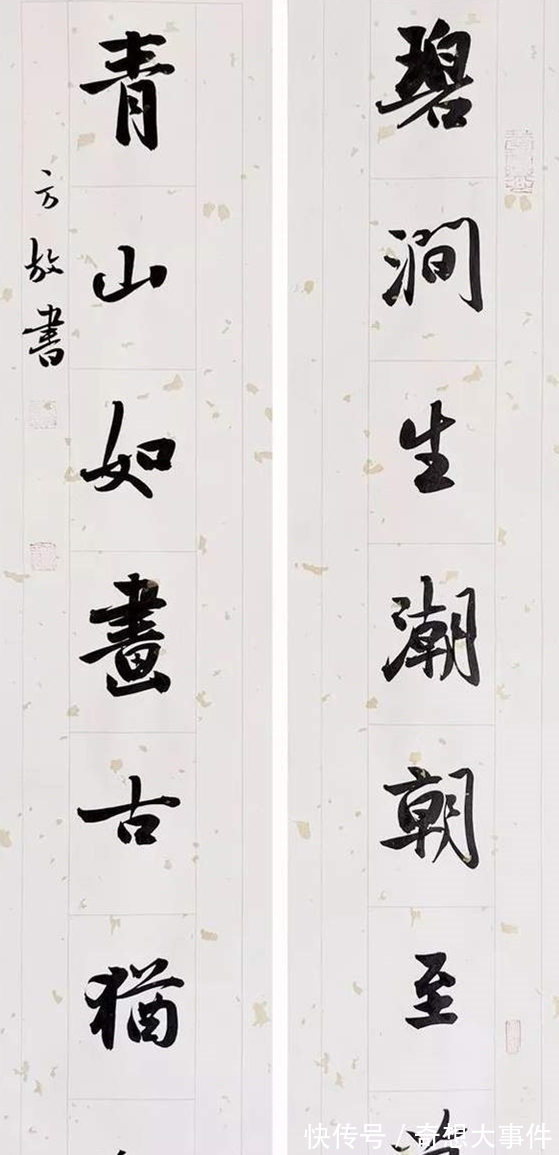 碧澗生潮朝至
青山如畫古猶
方放書
快传号/奇想大事件